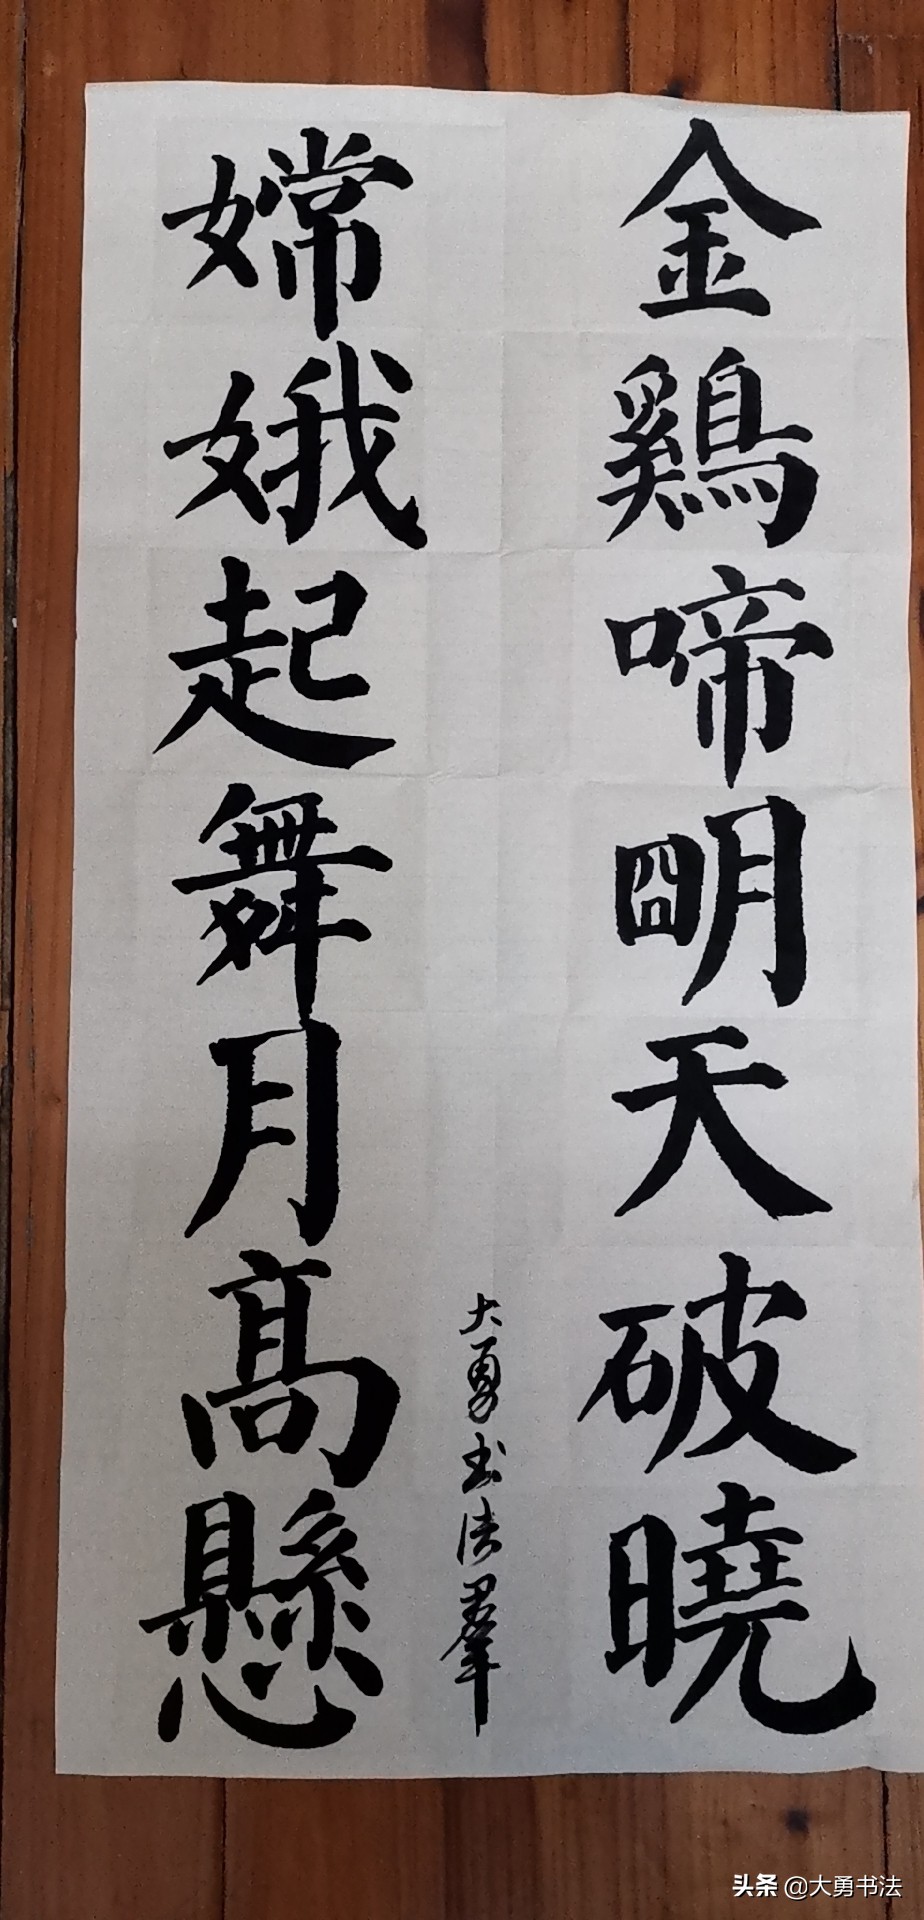 金鷄啼明天破曉
嫦娥起舞月高懸
大勇书法羣
头条 @大勇书法